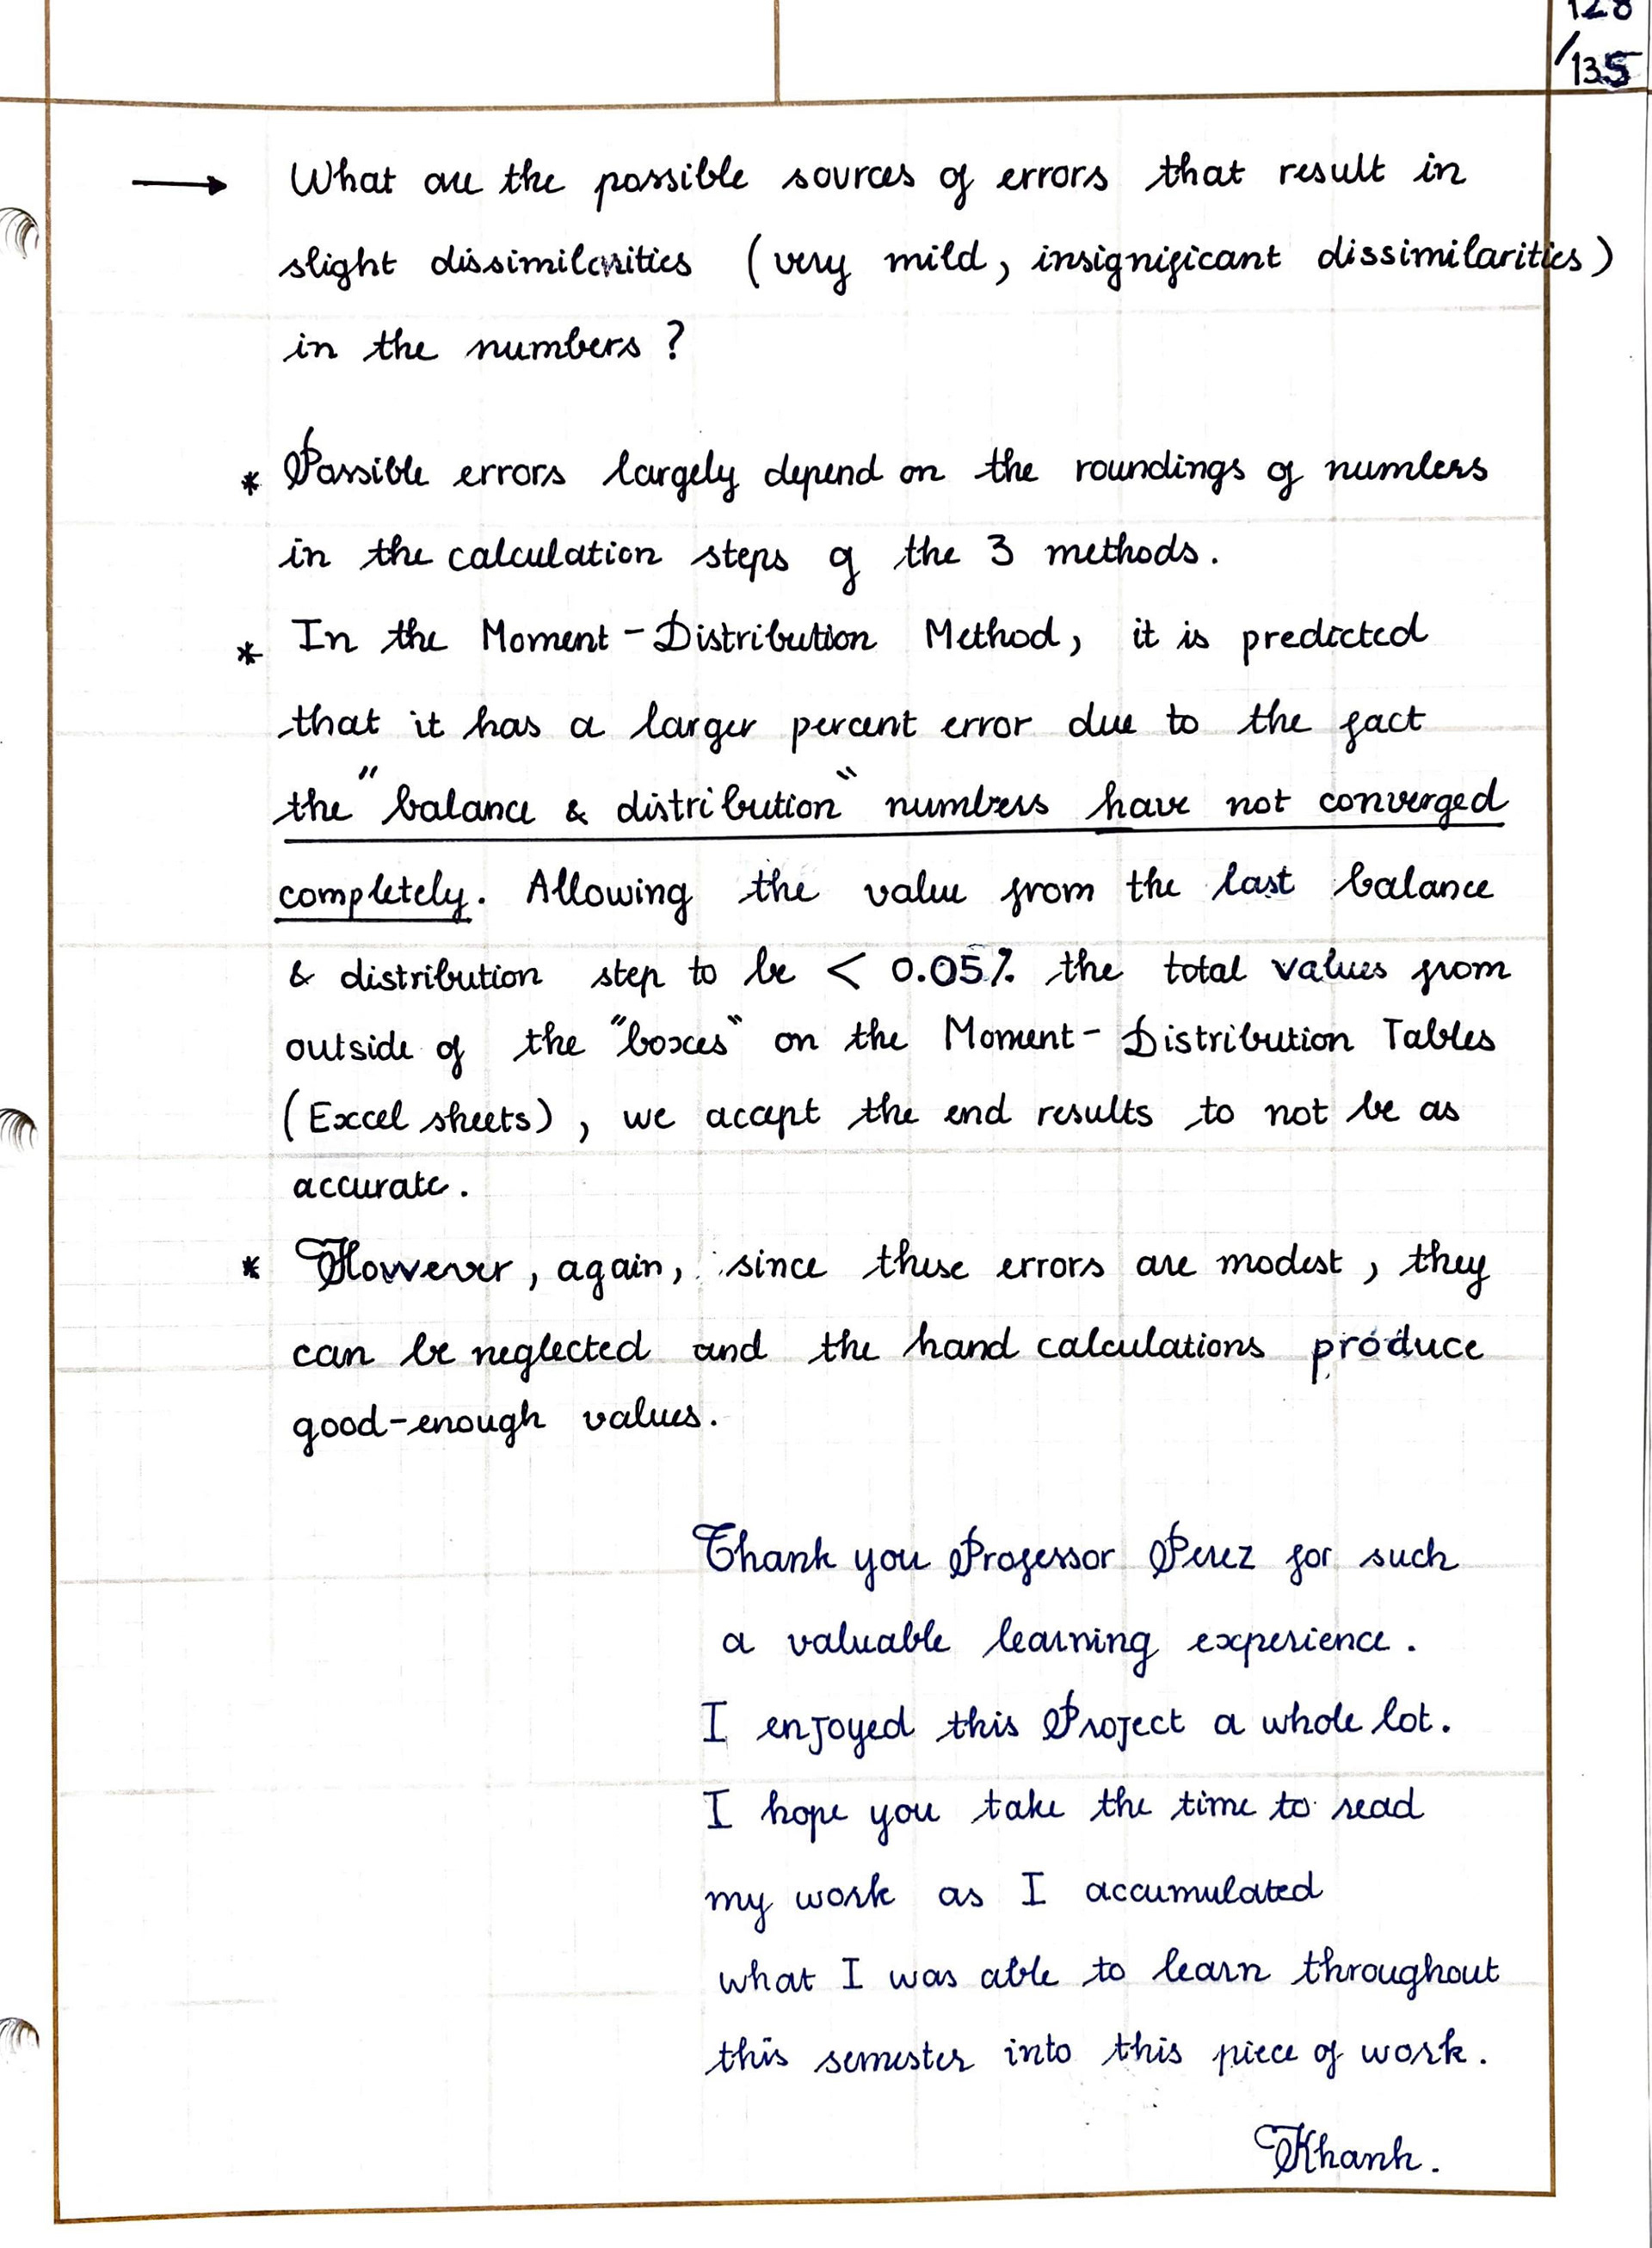 128
/135
→ What are the possible sources of errors that result in
slight dissimilarities (very mild, insignificant dissimilarities)
in the numbers ?
* Possible errors largely depend on the roundings of numbers
in the calculation steps of the 3 methods.
* In the Moment - Distribution Method, it is predicted
that it has a larger percent error due to the fact
the "balance & distribution" numbers have not converged
completely. Allowing the value from the last balance
& distribution step to be < 0.05% the total values from
outside of the "boxes" on the Moment - Distribution Tables
(Excel sheets), we accept the end results to not be as
accurate.
* However, again, since these errors are modest, they
can be neglected and the hand calculations produce
good-enough values.
Thank you Professor Perez for such
a valuable learning experience.
I enjoyed this Project a whole lot.
I hope you take the time to read
my work as I accumulated
what I was able to learn throughout
this semester into this piece of work.
Khanh.